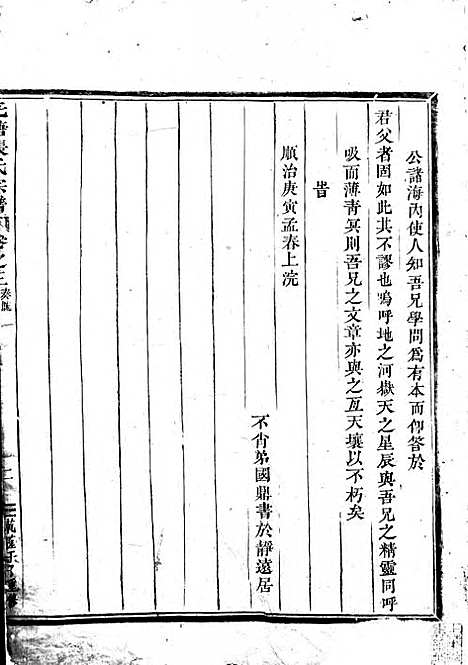 公諸海內使人知吾兄學問爲有本而仰答於
君父者固如此其不謬也嗚呼地之河嶽天之星辰與吾兄之精靈同呼
吸而薄靑冥則吾兄之文章亦與之亙天壤以不朽矣
旹
順治庚寅孟春上浣
不肖弟國鼎書於靜遠居
張氏宗譜
卷之三